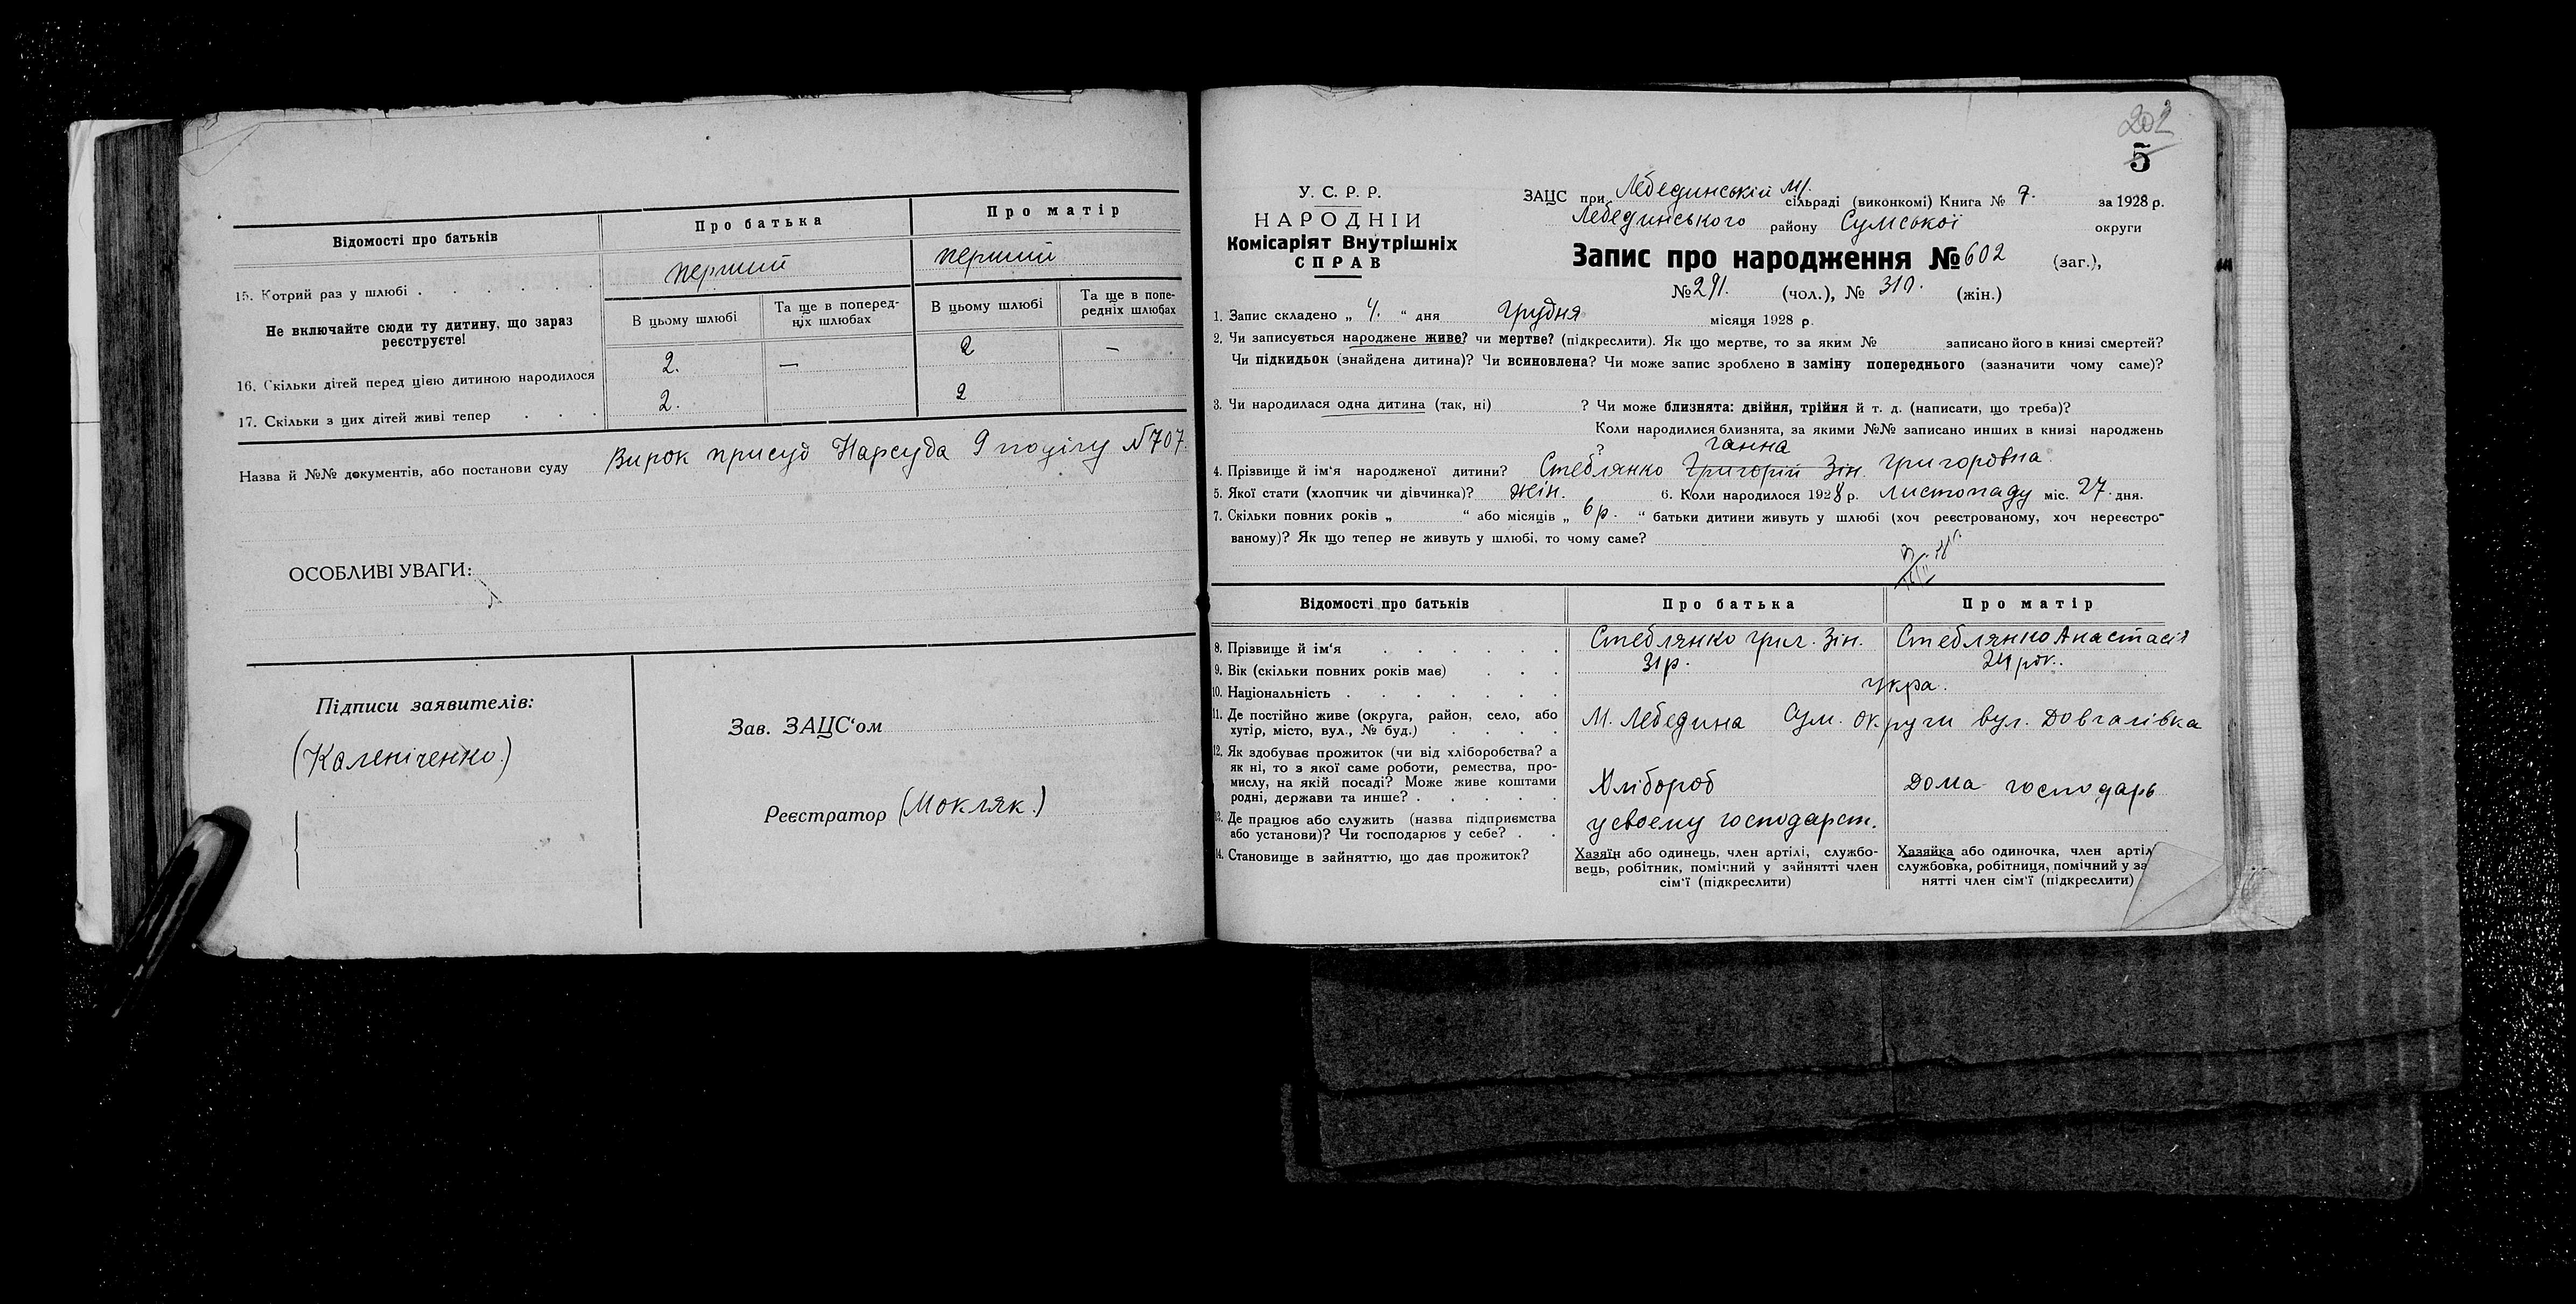 Відомості про батьків
Про батька
Про матір
15. Котрий раз у шлюбі
перший
перший
Не включайте сюди ту дитину, що зараз реєструєте!
В цьому шлюбі
Та ще в поперед-
ніх шлюбах
В цьому шлюбі
Та ще в попе-
редніх шлюбах
16. Скільки дітей перед цією дитиною народилося
2. — 2 —
17. Скільки з цих дітей живі тепер
2. 2
Назва й №№ документів, або постанови суду Вирок присуд Нарсуда 9 поділу №707.
ОСОБЛИВІ УВАГИ:
Підписи заявителів:
(Каленіченко.)
Зав. ЗАЦС'ом
Реєстратор (Мокляк.)
202
5
У. С. Р. Р.
НАРОДНІЙ
Комісаріят Внутрішніх
СПРАВ
ЗАЦС при Лебединській м/. сільраді (виконкомі) Книга № 7. за 1928 р.
Лебединського району Сумської округи
Запис про народження № 602 (заг.),
№ 291. (чол.), № 310. (жін.)
1. Запис складено „ 4. “ дня грудня місяця 1928 р.
2. Чи записується народжене живе? чи мертве? (підкреслити). Як що мертве, то за яким № записано його в книзі смертей?
Чи підкидьок (знайдена дитина)? Чи всиновлена? Чи може запис зроблено в заміну попереднього (зазначити чому саме)?
3. Чи народилася одна дитина (так, ні) ? Чи може близнята: двійня, трійня й т. д. (написати, що треба)?
Коли народилися близнята, за якими №№ записано инших в книзі народжень
?
ганна
4. Прізвище й ім'я народженої дитини? Стеблянко Григорій Зін. Григоровна.
5. Якої стати (хлопчик чи дівчинка)? жін. 6. Коли народилося 1928 р. листопаду міс. 27. дня.
7. Скільки повних років „ “ або місяців „ 6 р. “ батьки дитини живуть у шлюбі (хоч реєстрованому, хоч нереєстро-
ваному)? Як що тепер не живуть у шлюбі, то чому саме?
Відомості про батьків
Про батька
Про матір
8. Прізвище й ім'я
Стеблянко Григ. Зін.
Стеблянко Анастасія
9. Вік (скільки повних років має)
31 р.
24 рок.
10. Національність
Укра.
11. Де постійно живе (округа, район, село, або
хутір, місто, вул., № буд.)
М. Лебедина Сум. округи вул. Довгалівка
12. Як здобуває прожиток (чи від хліборобства? а
як ні, то з якої саме роботи, ремества, про-
мислу, на якій посаді? Може живе коштами
родні, держави та инше?
Хлібороб
Дома господарь
13. Де працює або служить (назва підприємства
або установи)? Чи господарює у себе?
у своему господарст.
14. Становище в зайняттю, що дає прожиток?
Хазяїн або одинець, член артілі, службо-
вець, робітник, помічний у зайнятті член
сім'ї (підкреслити)
Хазяйка або одиночка, член артіл
службовка, робітниця, помічний у за
нятті член сім'ї (підкреслити)